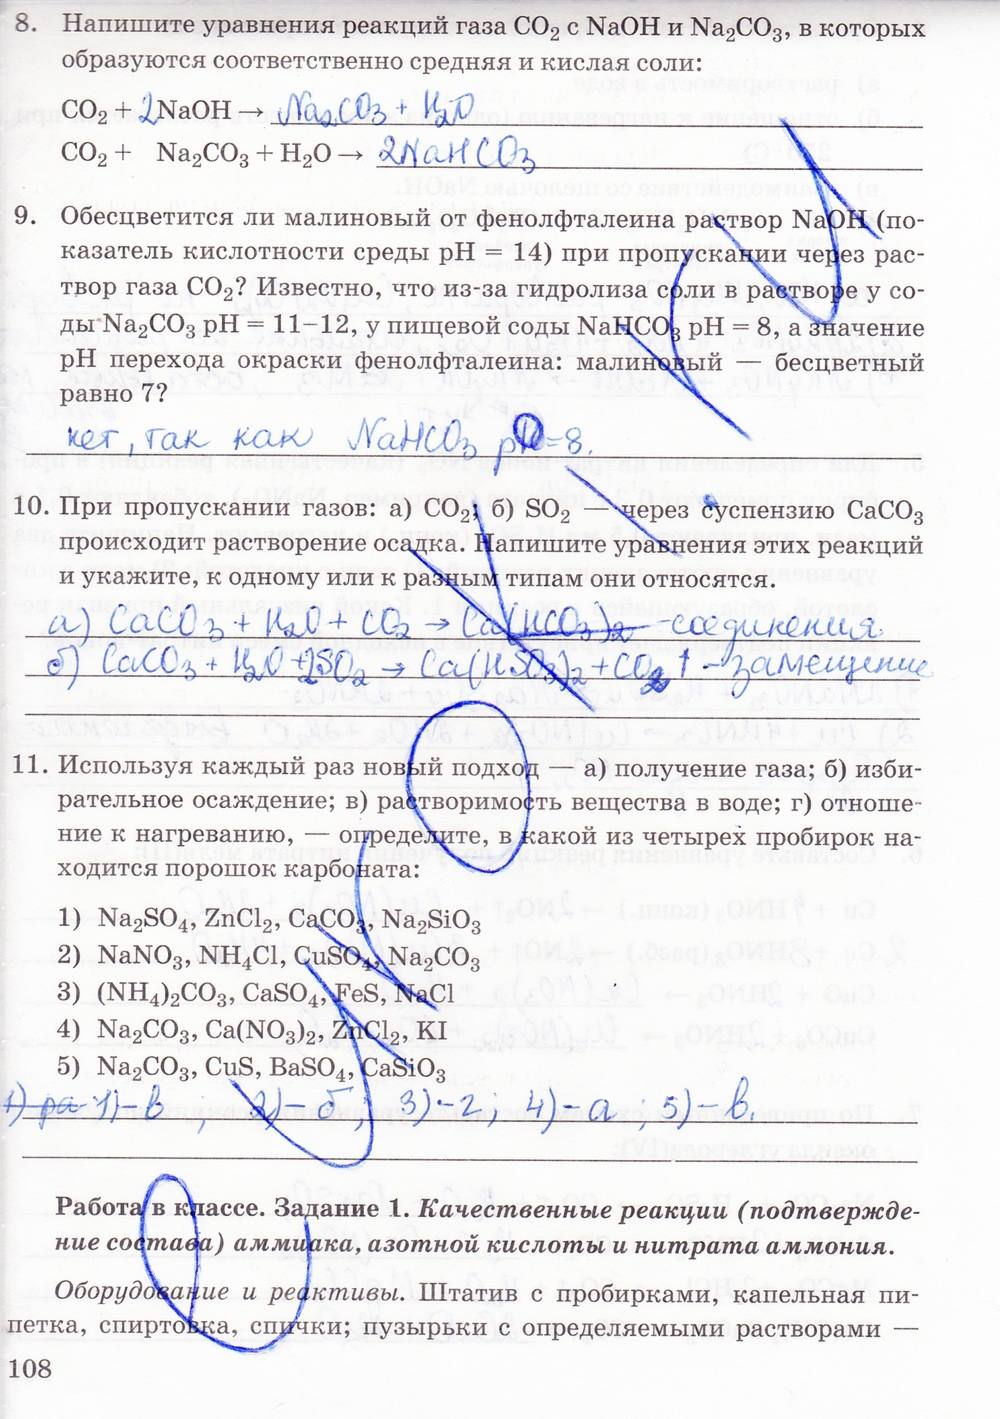 8. Напишите уравнения реакций газа CO₂ с NaOH и Na₂CO₃, в которых
образуются соответственно средняя и кислая соли:
CO₂ + 2NaOH → Na₂CO₃ + H₂O
CO₂ + Na₂CO₃ + H₂O → 2NaHCO₃
9. Обесцветится ли малиновый от фенолфталеина раствор NaOH (по-
казатель кислотности среды pH = 14) при пропускании через рас-
твор газа CO₂? Известно, что из-за гидролиза соли в растворе у со-
ды Na₂CO₃ pH = 11–12, у пищевой соды NaHCO₃ pH = 8, а значение
pH перехода окраски фенолфталеина: малиновый — бесцветный
равно 7?
нет, так как NaHCO₃ pH=8.
10. При пропускании газов: а) CO₂; б) SO₂ — через суспензию CaCO₃
происходит растворение осадка. Напишите уравнения этих реакций
и укажите, к одному или к разным типам они относятся.
а) CaCO₃ + H₂O + CO₂ → Ca(HCO₃)₂ - соединения.
б) CaCO₃ + H₂O + 2SO₂ → Ca(HSO₃)₂ + CO₂↑ - замещение
11. Используя каждый раз новый подход — а) получение газа; б) изби-
рательное осаждение; в) растворимость вещества в воде; г) отноше-
ние к нагреванию, — определите, в какой из четырех пробирок на-
ходится порошок карбоната:
1) Na₂SO₄, ZnCl₂, CaCO₃, Na₂SiO₃
2) NaNO₃, NH₄Cl, CuSO₄, Na₂CO₃
3) (NH₄)₂CO₃, CaSO₄, FeS, NaCl
4) Na₂CO₃, Ca(NO₃)₂, ZnCl₂, KI
5) Na₂CO₃, CuS, BaSO₄, CaSiO₃
1) ра 1)-в ; 2)-б; 3)-г; 4)-а; 5)-в.
Работа в классе. Задание 1. Качественные реакции (подтвержде-
ние состава) аммиака, азотной кислоты и нитрата аммония.
Оборудование и реактивы. Штатив с пробирками, капельная пи-
петка, спиртовка, спички; пузырьки с определяемыми растворами —
108